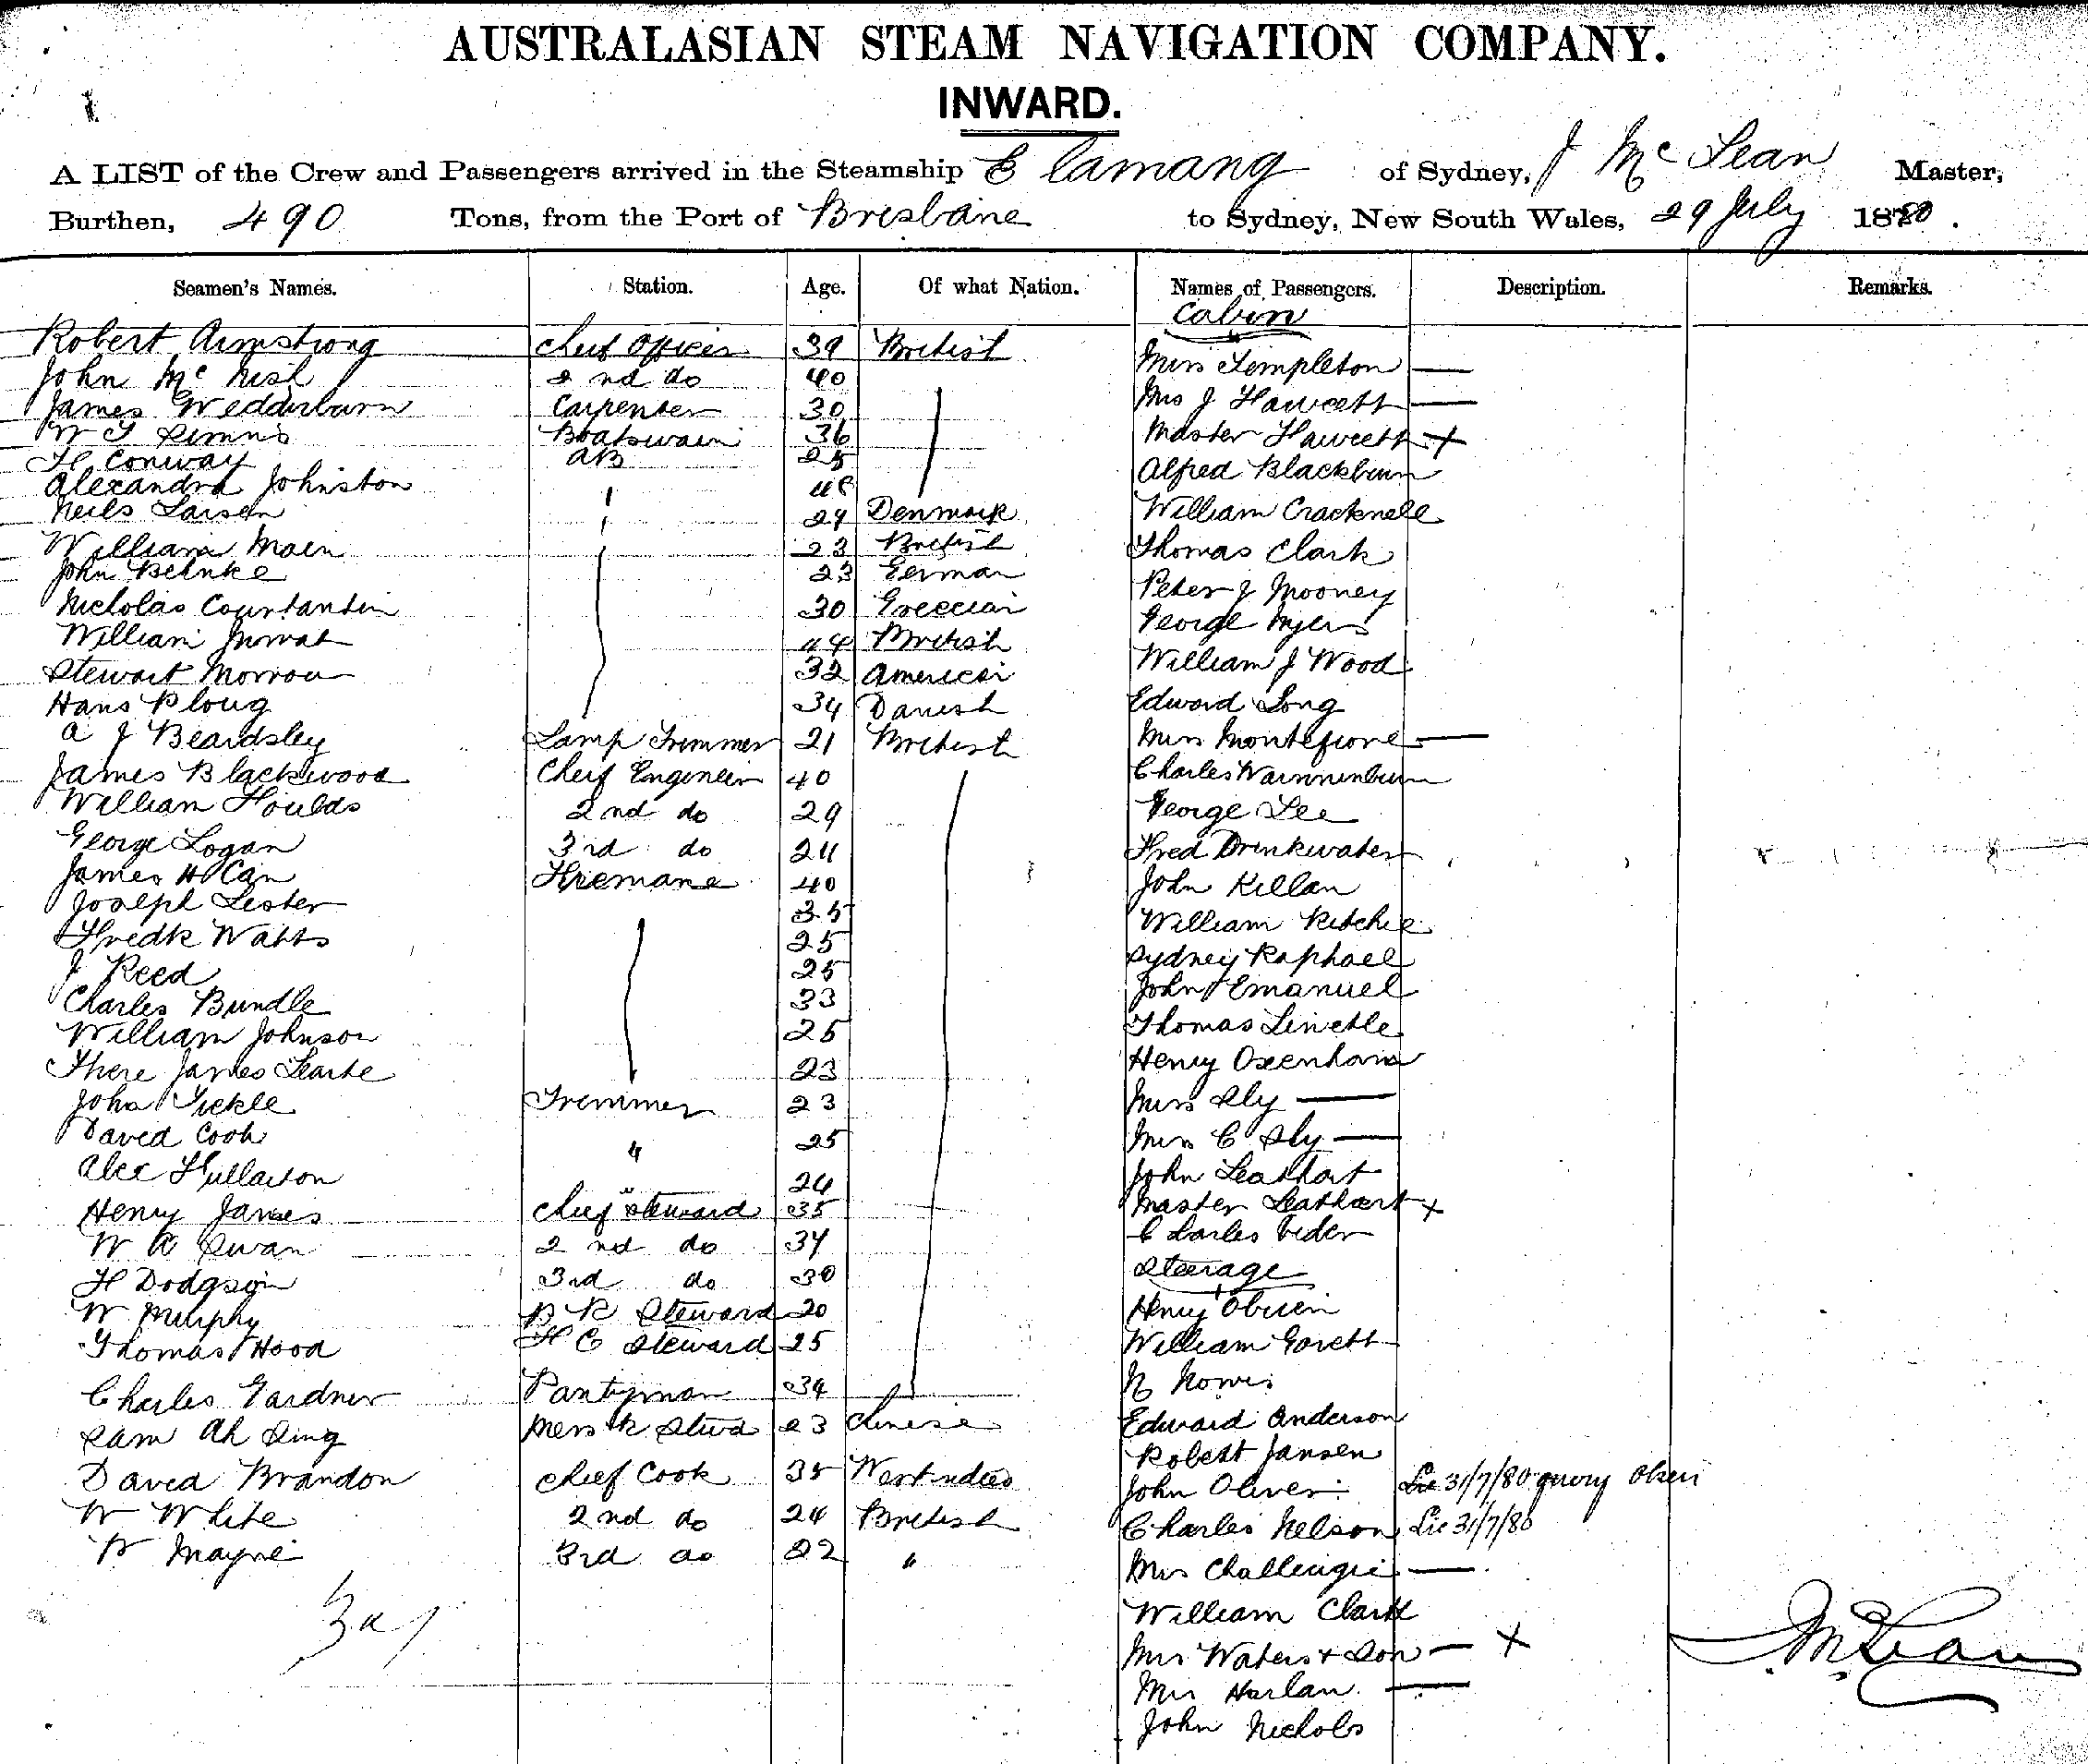 AUSTRALASIAN STEAM NAVIGATION COMPANY.
INWARD.
A LIST of the Crew and Passengers arrived in the Steamship Elamang of Sydney, J McLean Master,
Burthen, 490 Tons, from the Port of Brisbane to Sydney, New South Wales, 29 July 1880.
Seamen's Names. Station. Age. Of what Nation. Names of Passengers. Description. Remarks.
Cabin
Robert Armstrong Cheif Officer 39 British Miss Templeton —
John McNish 2nd do 40 Mrs J Fawcett —
James Wedderburn Carpenter 30 Master Fawcett +
W Simms Boatswain 36 Alfred Blackburn
H Conway AB 25 William Cracknell
Alexandra Johnston Thomas Clark
Neils Larsen 29 Denmark Peter J Mooney
William Main 23 British George Myers
John Behnke 23 German William J Wood
Nicholas Constantin 30 Greecian Edward Long
William Mowat 44 British Miss Montefiore —
Stewart Morrow 32 American Charles
Hans Ploug 34 Danish George Lee
A J Beardsley Lamp Trimmer 21 British Fred Drinkwater
James Blackwood Cheif Engineer 40 John Killan
William Houlds 2nd do 29 William Ritchie
George Logan 3rd do 24 Sydney Raphael
James Fireman 40 John Emanuel
Joseph Lester 35 Thomas
Fredk Watts 25 Henry Oxenham
J Reed 25 Miss Sly —
Charles Bundle 33 Miss C Sly —
William Johnson 25 John Leathart
James 23 Master Leathart +
John Tickle Trimmer 23 Charles
David Cook " 25 Steerage
Alec Fullarton " 24 Henry Obrien
Henry James Cheif Steward 35 William Garett
W A Swan 2nd do 34 N
H Dodgson 3rd do 30 Edward Anderson
W Murphy B R Steward 20 Robert Jansen
Thomas Hood F C Steward 25 John Oliver Lic 31/7/80 query Olsen
Charles Gardner Pantryman 34 Charles Nelson Lic 31/7/80
Sam Ah Sing Mess R Stwd 23 Chinese Mrs —
David Brandon Cheif Cook 35 West Indies William Clark
W White 2nd do 24 British Mrs Waters & Son — +
W Mayne 3rd do 22 " Mrs Harlan —
John Nichols
J McLean